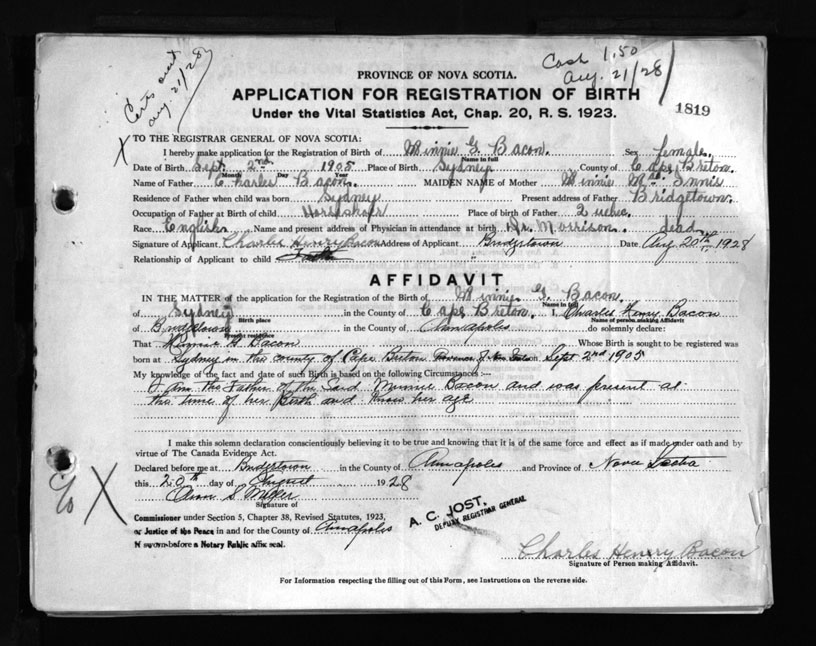 Certs sent
Aug. 21/28
Cash 1.50
Aug. 21/28
PROVINCE OF NOVA SCOTIA.
APPLICATION FOR REGISTRATION OF BIRTH
Under the Vital Statistics Act, Chap. 20, R. S. 1923.
1819
X TO THE REGISTRAR GENERAL OF NOVA SCOTIA:
I hereby make application for the Registration of Birth of Minnie G. Bacon. Sex female.
Name in full
Date of Birth Sept. 2nd 1905 Place of Birth Sydney County of Cape Breton.
Month Day Year
Name of Father Charles Bacon. MAIDEN NAME of Mother Minnie McInnis
Residence of Father when child was born Sydney Present address of Father Bridgetown.
Occupation of Father at Birth of child Horseshoer Place of birth of Father Quebec.
Race English. Name and present address of Physician in attendance at birth Dr. Morrison. dead.
Signature of Applicant Charles Henry Bacon Address of Applicant Bridgetown Date Aug 20th 1928
Relationship of Applicant to child Father
AFFIDAVIT
IN THE MATTER of the application for the Registration of the Birth of Minnie G. Bacon.
Name in full
of Sydney in the County of Cape Breton. I, Charles Henry Bacon
Birth place Name of person making Affidavit
of Bridgetown in the County of Annapolis do solemnly declare:
Present residence
That Minnie G Bacon Whose Birth is sought to be registered was
born at Sydney in the county of Cape Breton Province of Nova Scotia Sept 2nd 1905
My knowledge of the fact and date of such Birth is based on the following Circumstances:—
I am the Father of the Said Minnie Bacon and was present at
the time of her Birth and know her age
I make this solemn declaration conscientiously believing it to be true and knowing that it is of the same force and effect as if made under oath and by
virtue of The Canada Evidence Act.
Declared before me at Bridgetown in the County of Annapolis and Province of Nova Scotia
this 20th day of August 1928
X
Signature of
A. C. JOST.
DEPUTY REGISTRAR GENERAL
Commissioner under Section 5, Chapter 38, Revised Statutes, 1923,
or Justice of the Peace in and for the County of Annapolis
If sworn before a Notary Public affix seal.
Charles Henry Bacon
Signature of Person making Affidavit.
For Information respecting the filling out of this Form, see Instructions on the reverse side.